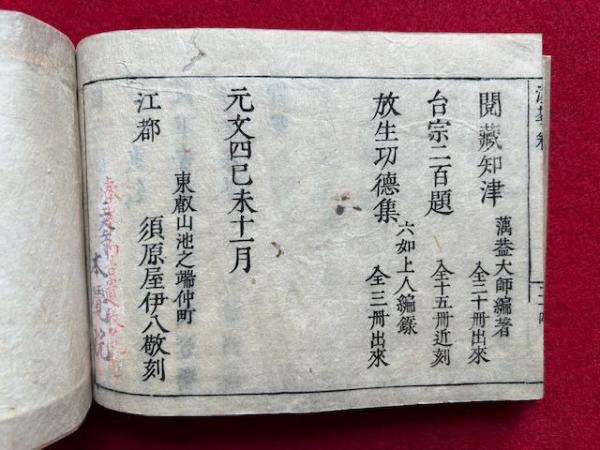 閱藏知津
蕅益大師編著
全二十冊出來
台宗二百題
全十五冊近刻
放生功德集
六如上人編錄
全三冊出來
元文四己未十一月
江都
東叡山池之端仲町
須原屋伊八敬刻